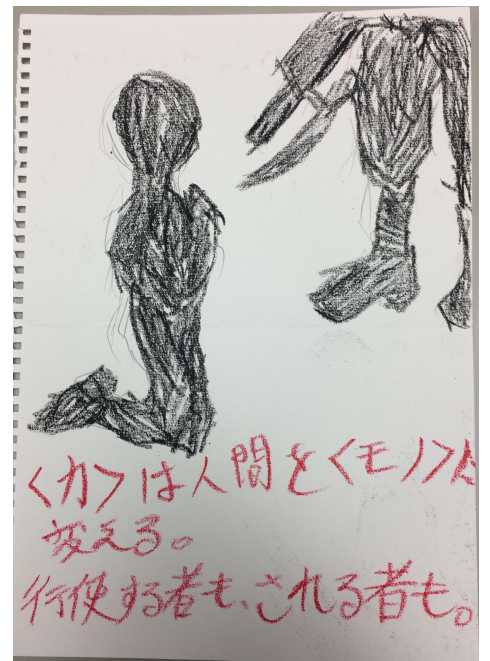 <力>は人間を<モノ>に
変える。
行使する者も、される者も。